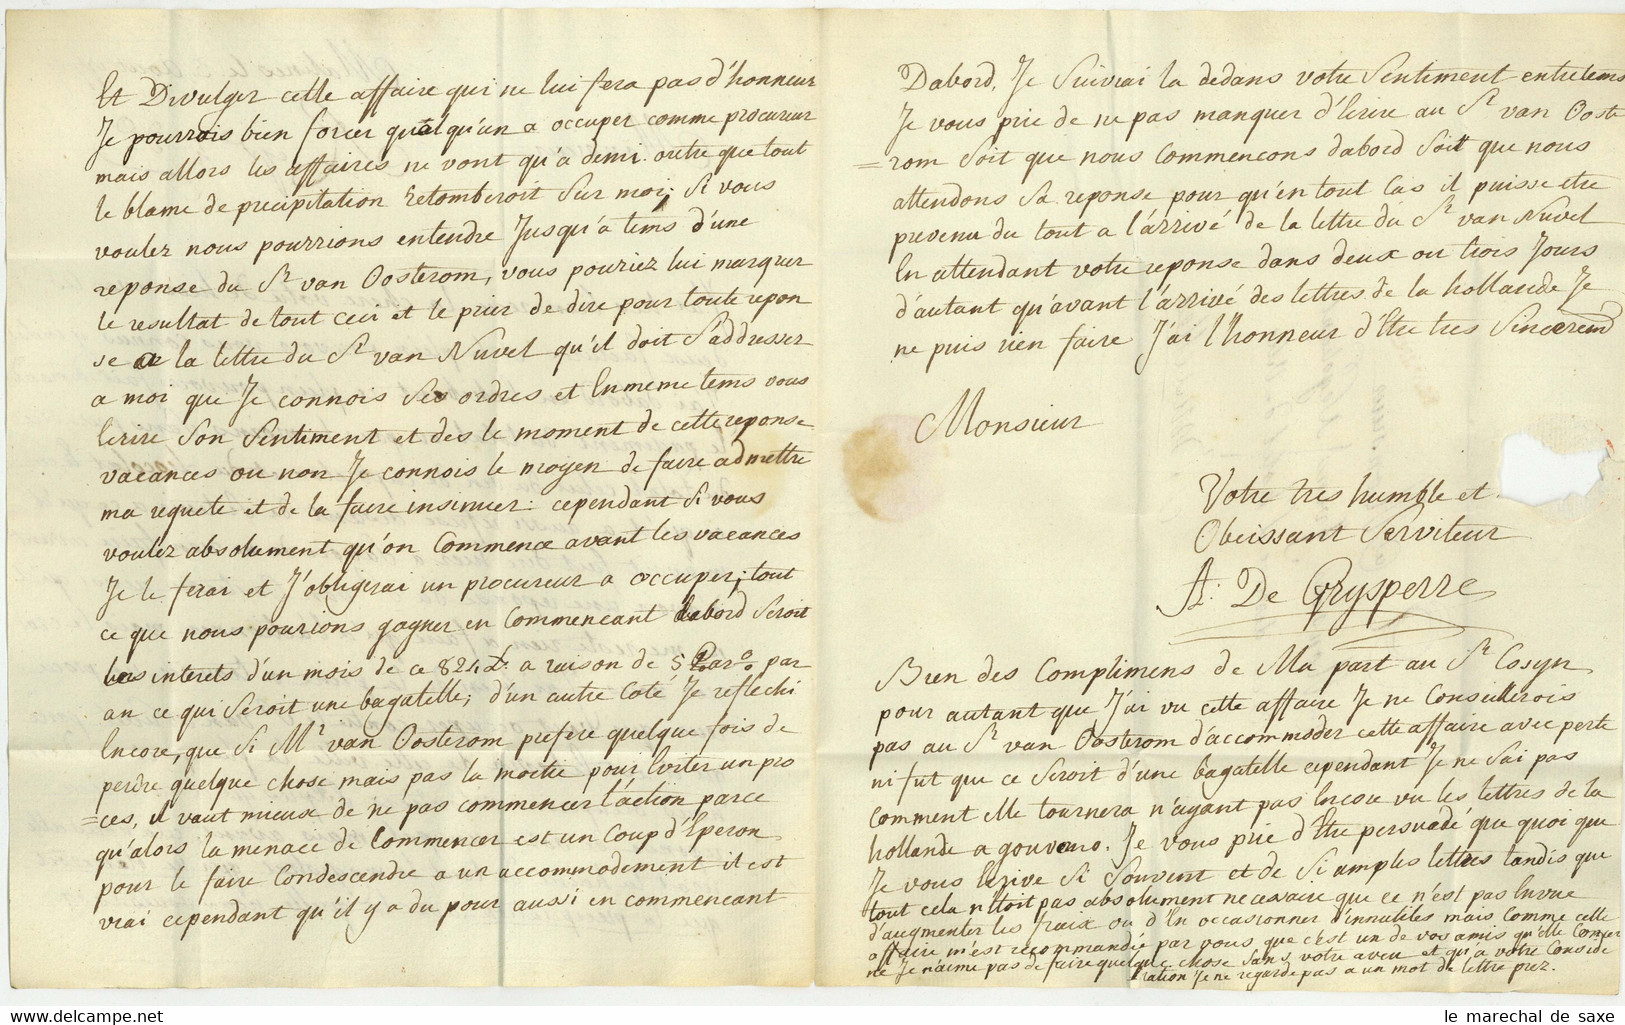 Et Divulger cette affaire qui ne lui fera pas d'honneur
Je pourrois bien forcer quelqu'un a occuper comme procureur
mais allors les affaires ne vont qu'a demi. outre que tout
le blame de precipitation retomberoit sur moi; Si vous
voulez nous pourrions entendre Jusqu'a tems d'une
reponse du Sr van Oosterom, vous pouriez lui marquer
le resultat de tout ceci et le prier de dire pour toute repon
se a la lettre du Sr van Nuvel qu'il doit S'addresser
a moi que Je connois Ses ordres et En meme tems vous
Ecrire Son Sentiment et des le moment de cette reponse
vacances ou non Je connois le moyen de faire admettre
ma requete et de la faire insinuer: cependant Si vous
voulez absolument qu'on Commence avant les vacances
Je le ferai et J'obligerai un procureur a occuper; tout
ce que nous pourions gagner en Commencant dabord Seroit
les interets d'un mois de ce 824 £. a raison de 5 par
an ce qui Seroit une bagatelle; d'un autre Coté Je reflechi
Encore, que Si Mr van Oosterom prefere quelque fois de
perdre quelque chose mais pas la moitie pour Eviter un pro
=ces, il vaut mieux de ne pas commencer l'action parce
qu'alors la menace de Commencer est un Coup d'Eperon
pour le faire Condescendre a un accommodement il est
vrai cependant qu'il y a du pour aussi en commencant
Dabord, Je Suivrai la dedans votre Sentiment entretems
Je vous prie de ne pas manquer d'Ecrire au Sr van Ooste
=rom Soit que nous Commencons dabord Soit que nous
attendons Sa reponse pour qu'en tout Cas il puisse etre
prevenu du tout a l'arrivé de la lettre du Sr van Nuvel
En attendant votre reponse dans deux ou trois Jours
d'autant qu'avant l'arrivé des lettres de la hollande Je
ne puis rien faire J'ai l'honneur d'Etre tres Sincerem
Monsieur
Votre tres humble et
Obeissant Serviteur
A: De Grysperre
Bien des Complimens de Ma part au Sr Cosyn
pour autant que J'ai vu cette affaire Je ne Conseillerois
pas au Sr van Oosterom d'accommoder cette affaire avec perte
ni fut que ce Seroit d'une bagatelle cependant Je ne Sai pas
Comment Elle tournera n'ayant pas Encore vu les lettres de la
hollande a gouverno. Je vous prie d'Etre persuadé que quoi que
Je vous Ecrive Si Souvent et de Si amples lettres tandis que
tout cela n'Etoit pas absolument necessaire que ce n'est pas Envue
d'augmenter les fraix ou d'En occasionner d'innutiles mais Comme cette
affaire m'est recommandée par vous que c'est un de vos amis qu'Elle Concer
ne Je n'aime pas de faire quelque chose Sans votre aveu et qu'a votre Conside
ration Je ne regarde pas a un mot de lettre prez.
le marechal de saxe